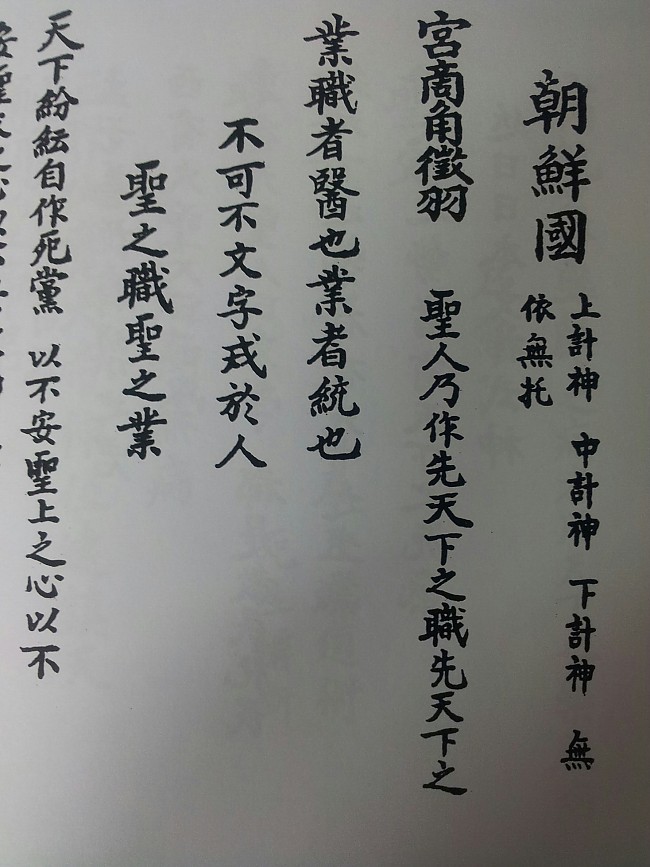 朝鮮國 上計神 中計神 下計神 無
依無托
宮商角徵羽 聖人乃作先天下之職先天下之
業職者醫也業者統也
不可不文字戎於人
聖之職聖之業
天下紛紜自作死黨 以不安聖上之心以不
安聖父之心以